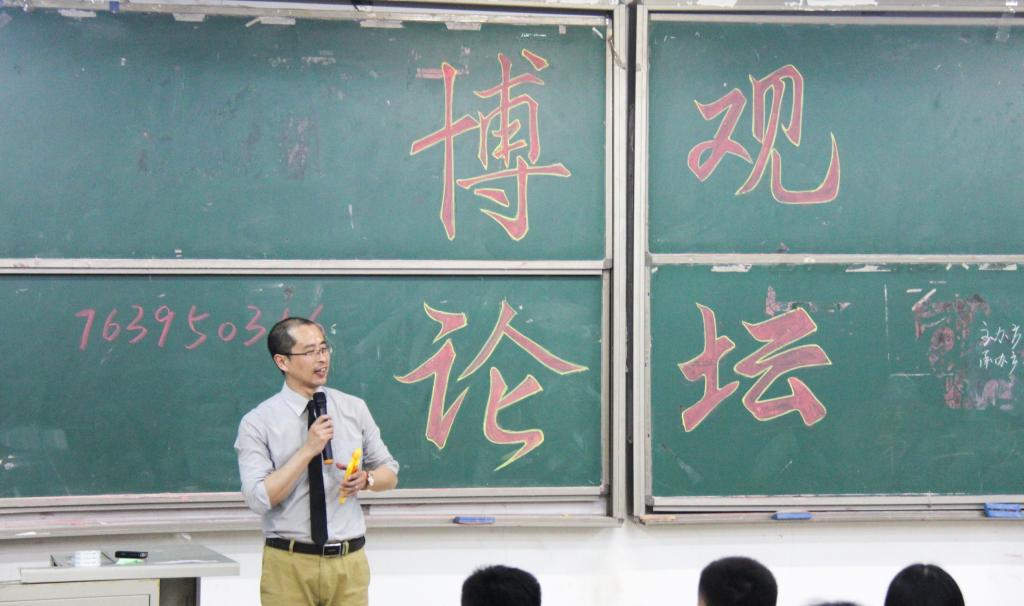 博观
7639503
论坛